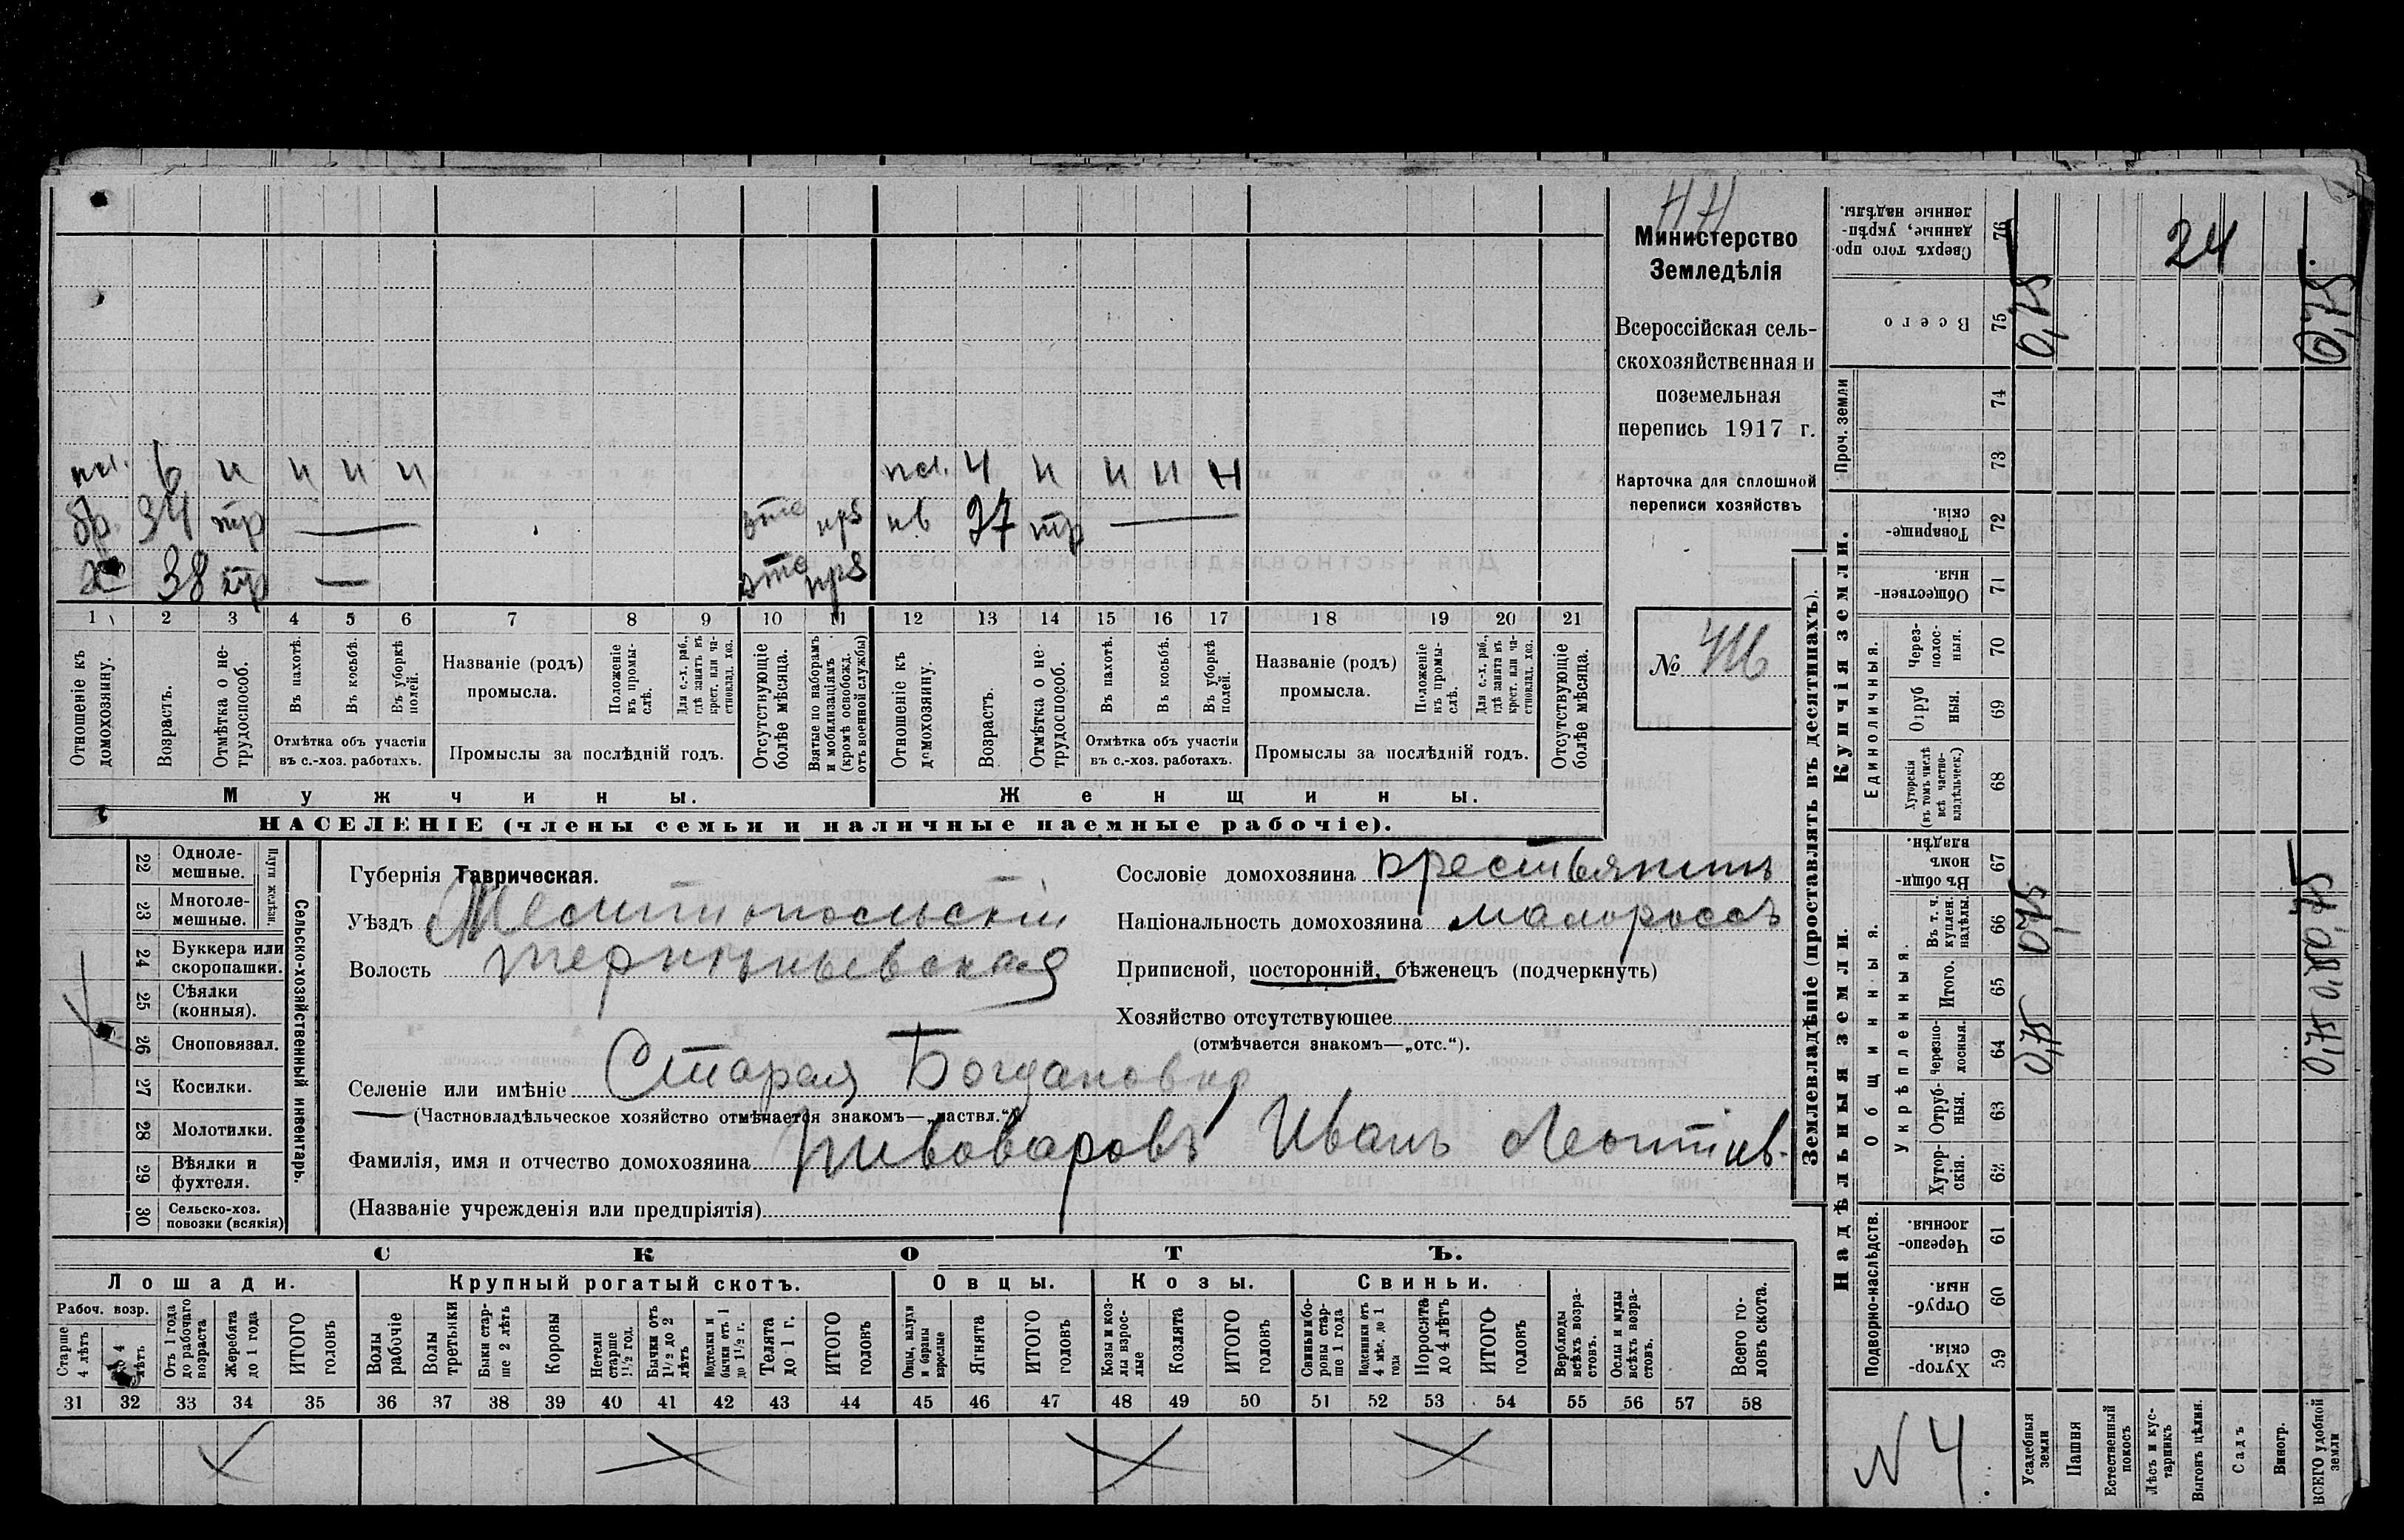 НН
Министерство
Земледѣлія
Всероссійская сель-
скохозяйственная и
поземельная
перепись 1917 г.
Карточка для сплошной
переписи хозяйствъ
№
пл. 6 н н н н пл. 4 н н н н
бр. 34 тр — нв 27 тр —
х 38 тр —
1 2 3 4 5 6 7 8 9 10 11 12 13 14 15 16 17 18 19 20 21
Отношеніе къ домохозяину.
Возрастъ.
Отмѣтка о не-трудоспособ.
Въ пахотѣ.
Въ косьбѣ.
Въ уборкѣ полей.
Отмѣтка объ участіи
въ с.-хоз. работахъ.
Названіе (родъ)
промысла.
Положеніе въ промы-слѣ.
Для с.-х. раб., гдѣ занятъ въ крест. или ча-стновлад. хоз.
Промыслы за послѣдній годъ.
Отсутствующіе болѣе мѣсяца.
Взятые по наборамъ и мобилизаціямъ (кромѣ освобожд. отъ военной службы)
Отношеніе къ домохозяину.
Возрастъ.
Отмѣтка о не-трудоспособ.
Въ пахотѣ.
Въ косьбѣ.
Въ уборкѣ полей.
Отмѣтка объ участіи
въ с.-хоз. работахъ.
Названіе (родъ)
промысла.
Положеніе въ промы-слѣ.
Для с.-х. раб., гдѣ занята въ крест. или ча-стновлад. хоз.
Промыслы за послѣдній годъ.
Отсутствующіе болѣе мѣсяца.
Мужчины.
Женщины.
НАСЕЛЕНІЕ (члены семьи и наличные наемные рабочіе).
Плуги желѣзн.
Сельско-хозяйственный инвентарь.
22 Однолемешные.
23 Многолемешные.
24 Буккера или скоропашки.
25 Сѣялки (конныя).
26 Сноповязал.
27 Косилки.
28 Молотилки.
29 Вѣялки и фухтеля.
30 Сельско-хоз. повозки (всякія)
Губернія Таврическая.
Уѣздъ Мелитопольскій
Волость Терпѣньевская
Селеніе или имѣніе Старая Богдановка
(Частновладѣльческое хозяйство отмѣчается знакомъ—„частвл.“)
Фамилія, имя и отчество домохозяина Пивоваровъ Иванъ Леонтьев.
(Названіе учрежденія или предпріятія)
Сословіе домохозяина крестьянинъ
Національность домохозяина малороссъ
Приписной, посторонній, бѣженецъ (подчеркнуть)
Хозяйство отсутствующее
(отмѣчается знакомъ—„отс.“).
СКОТЪ.
Лошади.
Крупный рогатый скотъ.
Овцы.
Козы.
Свиньи.
Рабоч. возр.
Старше 4 лѣтъ
До 4 лѣтъ
Отъ 1 года до рабочаго возраста
Жеребята до 1 года
ИТОГО головъ
Волы рабочіе
Волы третьяки
Быки стар-ше 2 лѣтъ
Коровы
Нетели старше 1½ год.
Бычки отъ 1½ до 2 лѣтъ
Подтелки и бычки отъ 1 до 1½ г.
Телята до 1 г.
ИТОГО головъ
Овцы, валухи и бараны взрослые
Ягнята
ИТОГО головъ
Козы и коз-лы взрос-лые
Козлята
ИТОГО головъ
Свиньи и бо-ровы стар-ше 1 года
Подсвинки отъ 4 мѣс. до 1 года
Поросята до 4 лѣтъ
ИТОГО головъ
Верблюды всѣхъ возра-стовъ.
Ослы и мулы всѣхъ возра-стовъ.
Всего го-ловъ скота.
31 32 33 34 35 36 37 38 39 40 41 42 43 44 45 46 47 48 49 50 51 52 53 54 55 56 57 58
Землевладѣніе (проставлять въ десятинахъ).
Купчія земли.
Надѣльныя земли.
Сверхъ того про-данные, укрѣп-ленные надѣлы. 76
Всего 75
Проч. земли 74 73
Товарище-скія. 72
Обществен-ныя. 71
Единоличныя.
Через-полос-ныя. 70
Отруб-ныя. 69
Хуторскія (въ томъ числѣ всѣ частно-владѣльческ.) 68
Общинныя.
Въ общин-номъ владѣн. 67
Укрѣпленныя.
Въ т. ч. куплен. надѣлы. 66
Итого. 65
Черезпо-лосныя. 64
Отруб-ныя. 63
Хутор-скія. 62
Подворно-наслѣдств.
Черезпо-лосныя. 61
Отруб-ныя. 60
Хутор-скія. 59
Усадебныя земли
Пашня
Естественный покосъ
Лѣсъ и кус-тарникъ
Выгонъ цѣлин.
Садъ
Виногр.
ВСЕГО удобной земли
24
0,75
0,75
0,75
0,75
0,75
N 4